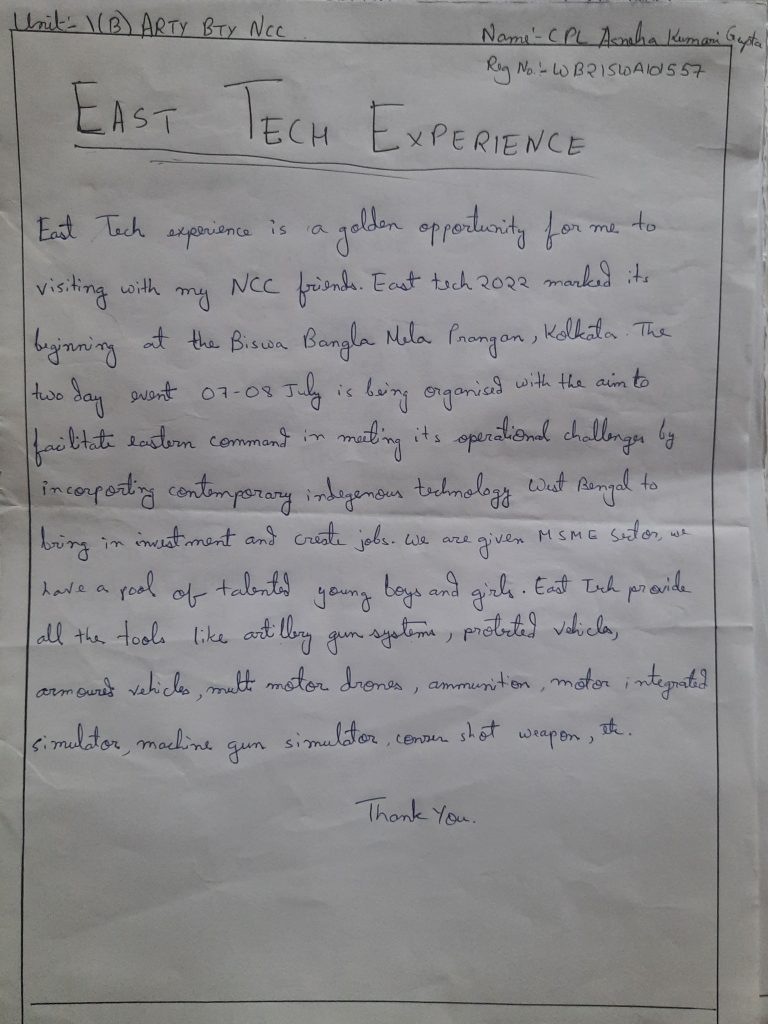 Unit:- 1(B) ARTY BTY NCC
Name:- CPL Asneha Kumari Gupta
Reg No.:- WB21SWA101557
EAST TECH EXPERIENCE
East Tech experience is a golden opportunity for me to
visiting with my NCC friends. East tech 2022 marked its
beginning at the Biswa Bangla Mela Prangan, Kolkata. The
two day event 07-08 July is being organised with the aim to
facilitate eastern command in meeting its operational challenges by
incorporting contemporary indegenous technology West Bengal to
bring in investment and create jobs. We are given MSME sector, we
have a pool of talented young boys and girls. East Tech provide
all the tools like artillery gun systems, protected vehicles,
armoured vehicles, multi motor drones, ammunition, motor integrated
simulator, machine gun simulator, shot weapon, etc.
Thank You.